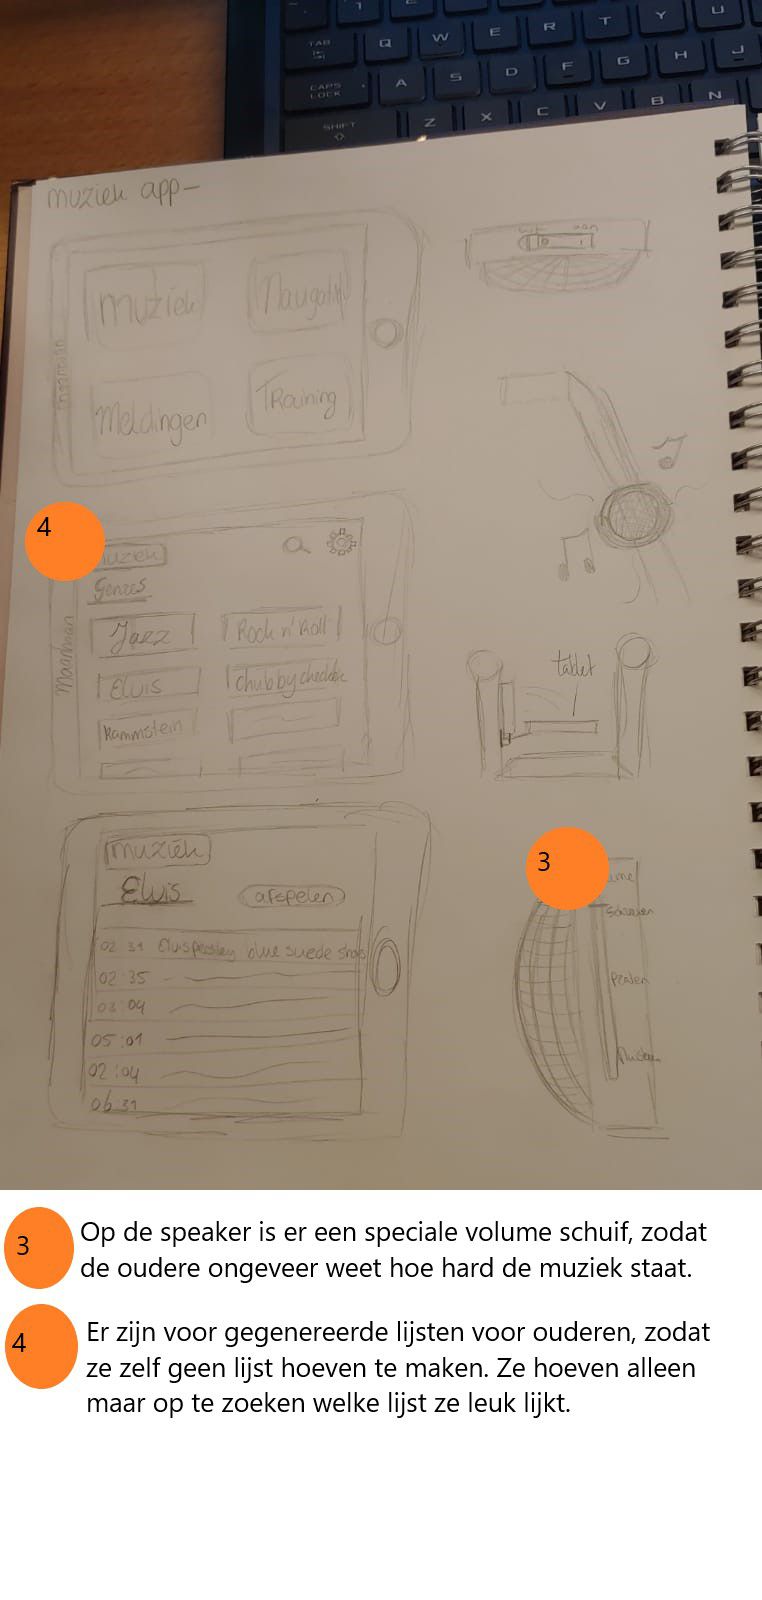 TAB
Q
W
E
R
T
Y
U
CAPS
LOCK
A
S
D
F
G
H
J
SHIFT
Z
X
C
V
B
N
muziek app-
muziek
Meldingen
Training
uit aan
4
muziek
Genres
Jazz
Rock n' Roll
Elvis
chubby checker
Rammstein
Maarman
tablet
muziek
Elvis
afspelen
02 31 Elvis presley blue suede shoes
02:35
03:04
05:01
02:04
06:31
3
ume
Schreeuwen
Praten
Fluisteren
3
Op de speaker is er een speciale volume schuif, zodat
de oudere ongeveer weet hoe hard de muziek staat.
4
Er zijn voor gegenereerde lijsten voor ouderen, zodat
ze zelf geen lijst hoeven te maken. Ze hoeven alleen
maar op te zoeken welke lijst ze leuk lijkt.